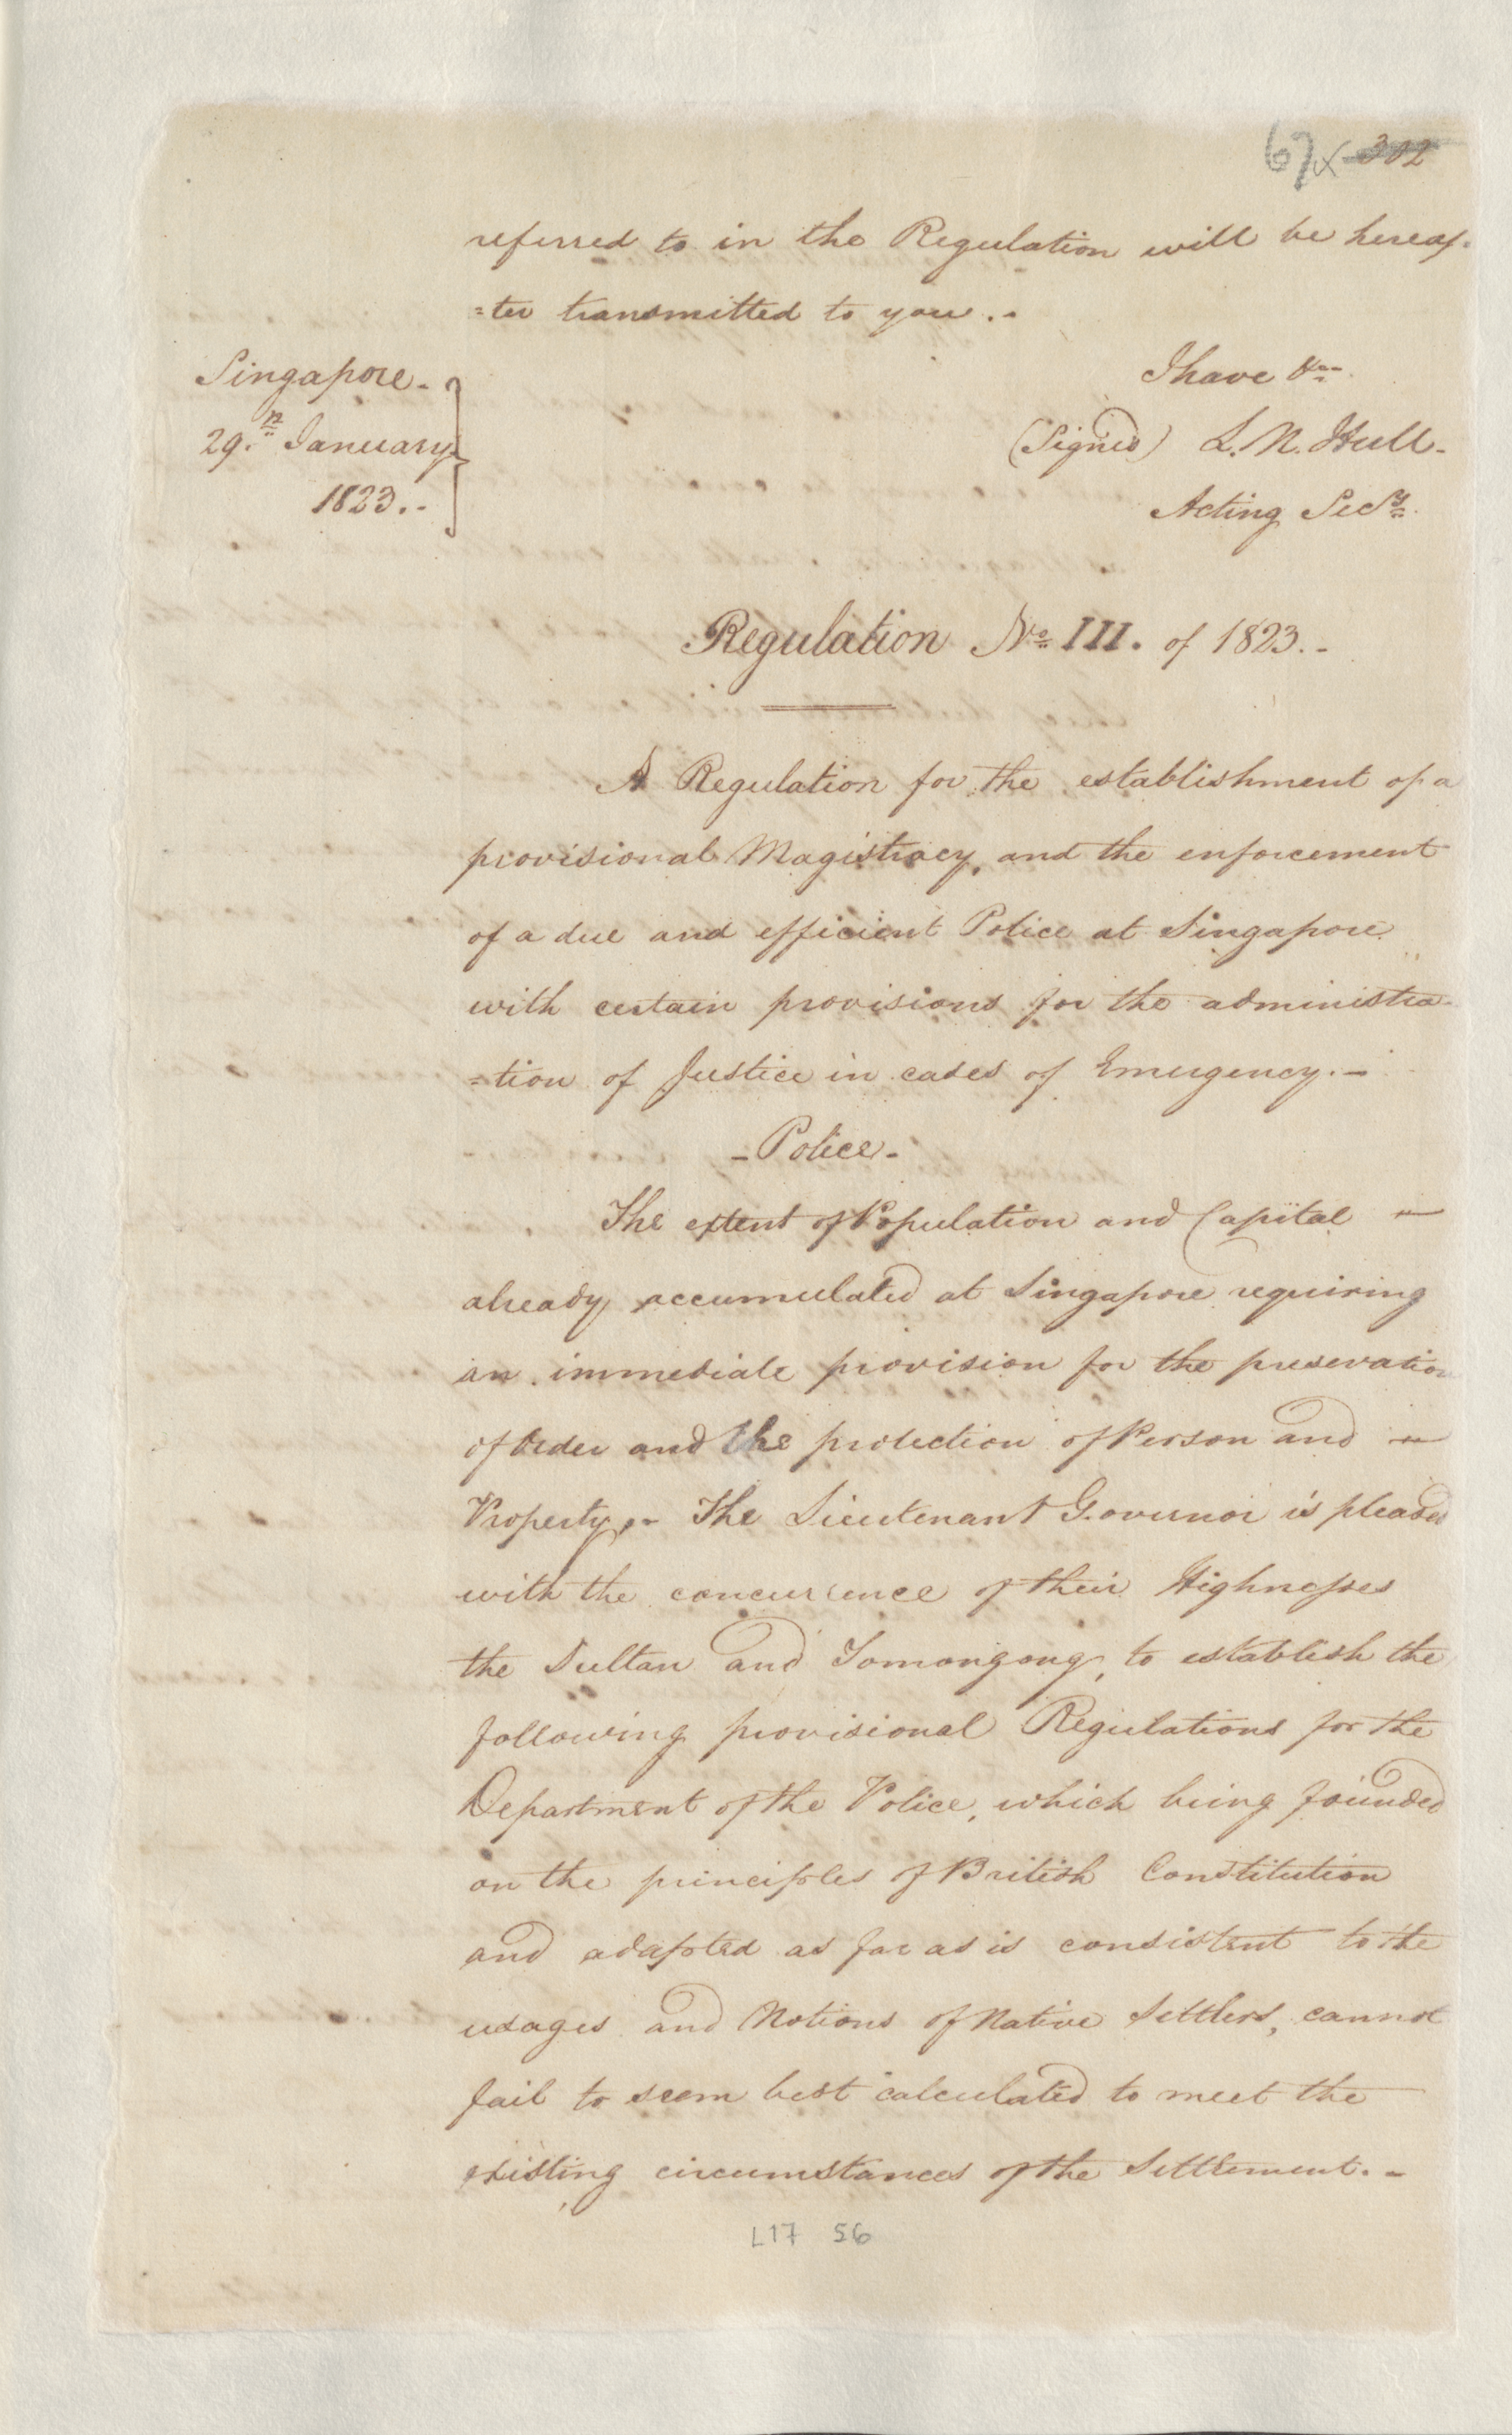 67 302
referred to in the Regulation will be hereaf-
=ter transmitted to you.-
Singapore-
29.th January
1823.-
I have &ca
(Signed) L. N. Hull-
Acting Secy.
Regulation No. III. of 1823.-
A Regulation for the establishment of a
provisional Magistracy, and the enforcement
of a due and efficient Police at Singapore
with certain provisions for the administra-
=tion of Justice in cases of Emergency.-
-Police-
The extent of Population and Capital -
already accumulated at Singapore requiring
an immediate provision for the preservation
of Order and the protection of Person and -
Property,- The Lieutenant Governor is pleased
with the concurrence of their Highnesses
the Sultan and Tomongong, to establish the
following provisional Regulations for the
Department of the Police, which being founded
on the principles of British Constitution
and adapted as far as is consistent to the
usages and Notions of Native Settlers, cannot
fail to seem best calculated to meet the
existing circumstances of the Settlement.-
L17 56